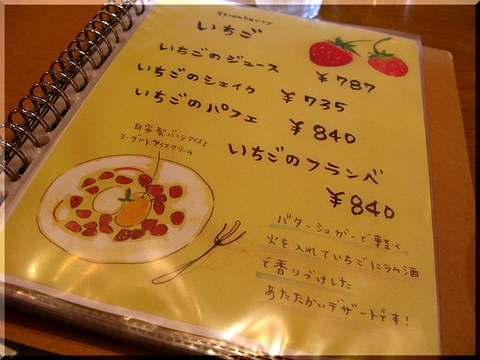 Strawberry
いちご
いちごのジュース ¥787
いちごのシェイク ¥735
いちごのパフェ ¥840
自家製バニラアイスと
ヨーグルトアイスクリーム
いちごのフランベ
¥840
バターシュガーで軽く
火を入れていちごにラム酒
で香りづけした
あたたかいデザートです!